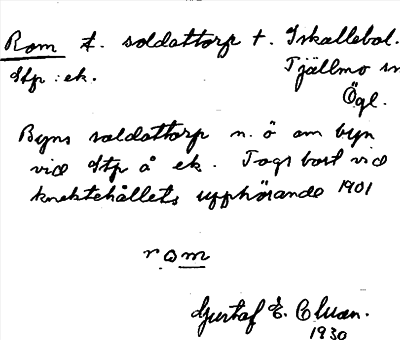 Rom t. soldattorp t. Iskallebol.
Stp : ek. Tjällmo sn
Ögl.
Byns soldattorp n. ö om byn
vid Stp å ek. Togs bort vid
knektehållets upphörande 1901
rom
Gustaf E. Cluan.
1930